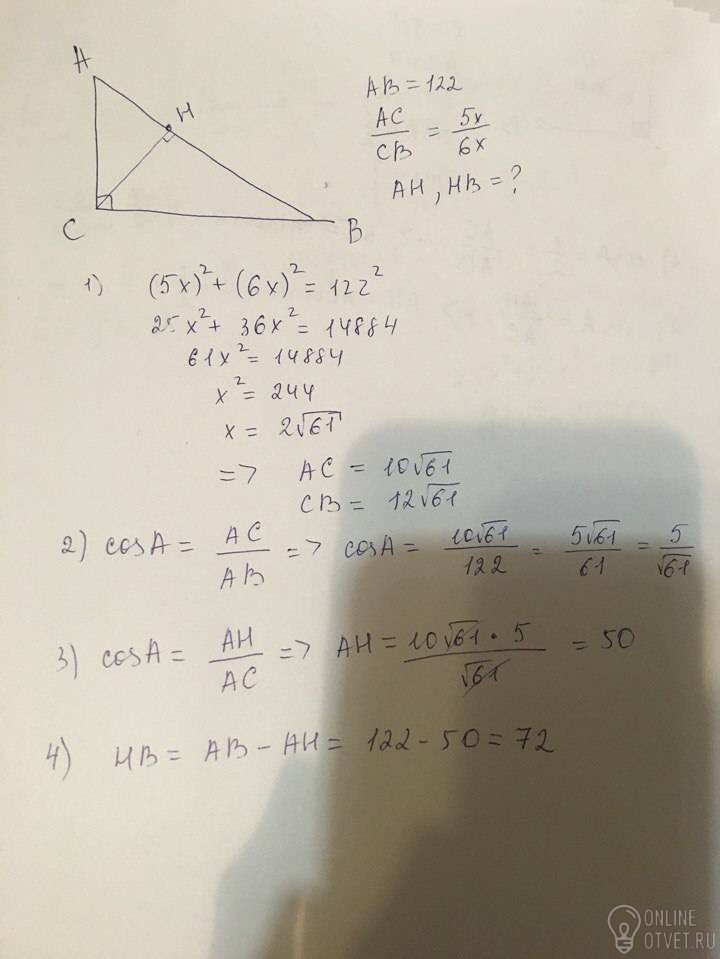 A
H
C
B
AB = 122
AC/CB = 5x/6x
AH, HB = ?
1) (5x)² + (6x)² = 122²
25x² + 36x² = 14884
61x² = 14884
x² = 244
x = 2√61
=> AC = 10√61
CB = 12√61
2) cosA = AC/AB => cosA = 10√61/122 = 5√61/61 = 5/√61
3) cosA = AH/AC => AH = 10√61 · 5/√61 = 50
4) HB = AB - AH = 122 - 50 = 72
ONLINE
OTVET.RU